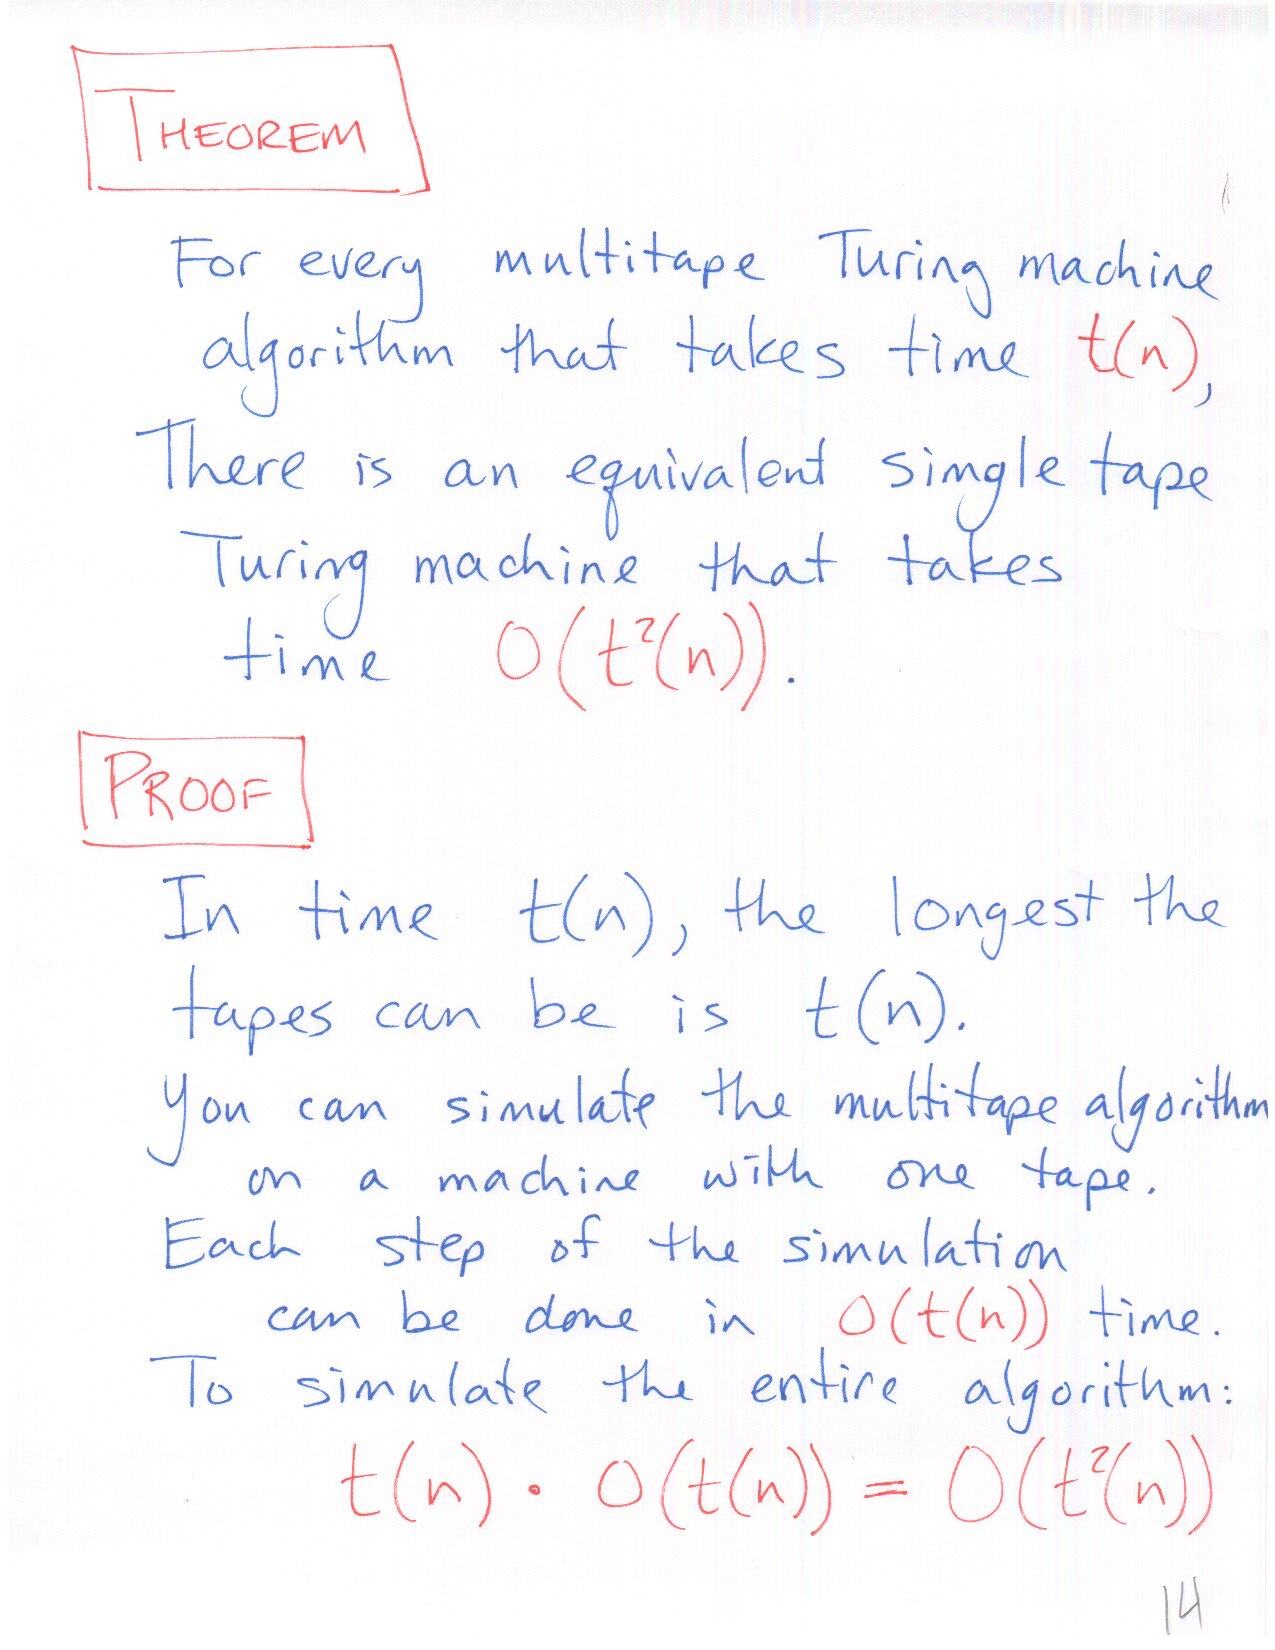 THEOREM
For every multitape Turing machine
algorithm that takes time t(n),
There is an equivalent single tape
Turing machine that takes
time O(t²(n)).
PROOF
In time t(n), the longest the
tapes can be is t(n).
You can simulate the multitape algorithm
on a machine with one tape.
Each step of the simulation
can be done in O(t(n)) time.
To simulate the entire algorithm:
t(n) · O(t(n)) = O(t²(n))
14